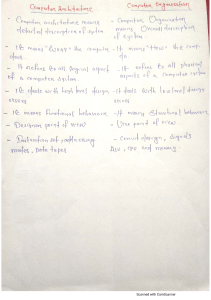 Computer Architecture
- Computer architecture means detailed description of system
- It means "
- It refers to all logical aspect of a computer system
- It deals with high level design issues
- It means Functional behaviour
- Designer point of view
- Instruction set, addressing modes, Data types
Computer Organization
- Computer Organization means Overall description of system
- It means "How" the
- It refers to all physical aspects of a computer system
- It deals with low level design issues
- It means Structural behaviour
- User point of view
- Circuit design, signals ALU, CPU and memory.
Scanned with CamScanner